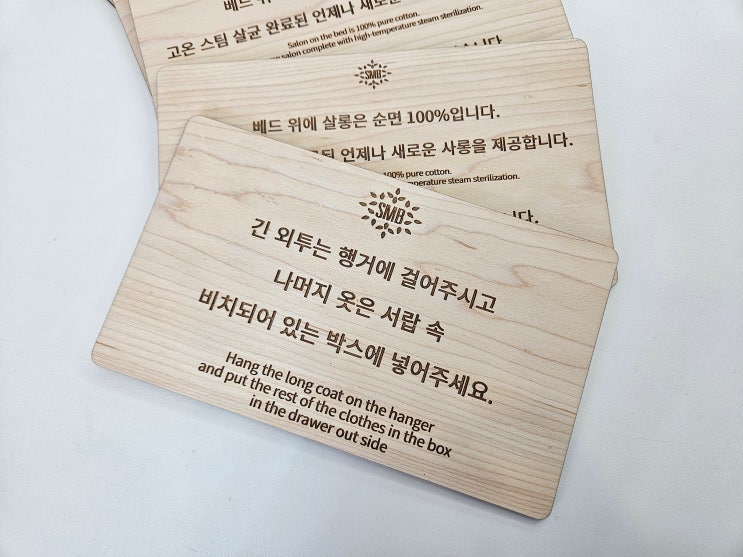 베드 위
고온 스팀 살균 완료된 언제나 새로운
Salon on the bed is 100% pure cotton.
salon complete with high-temperature steam sterilization.
SMB
베드 위에 살롱은 순면 100%입니다.
언제나 새로운 사롱을 제공합니다.
100% pure cotton.
steam sterilization.
SMB
긴 외투는 행거에 걸어주시고
나머지 옷은 서랍 속
비치되어 있는 박스에 넣어주세요.
Hang the long coat on the hanger
and put the rest of the clothes in the box
in the drawer out side